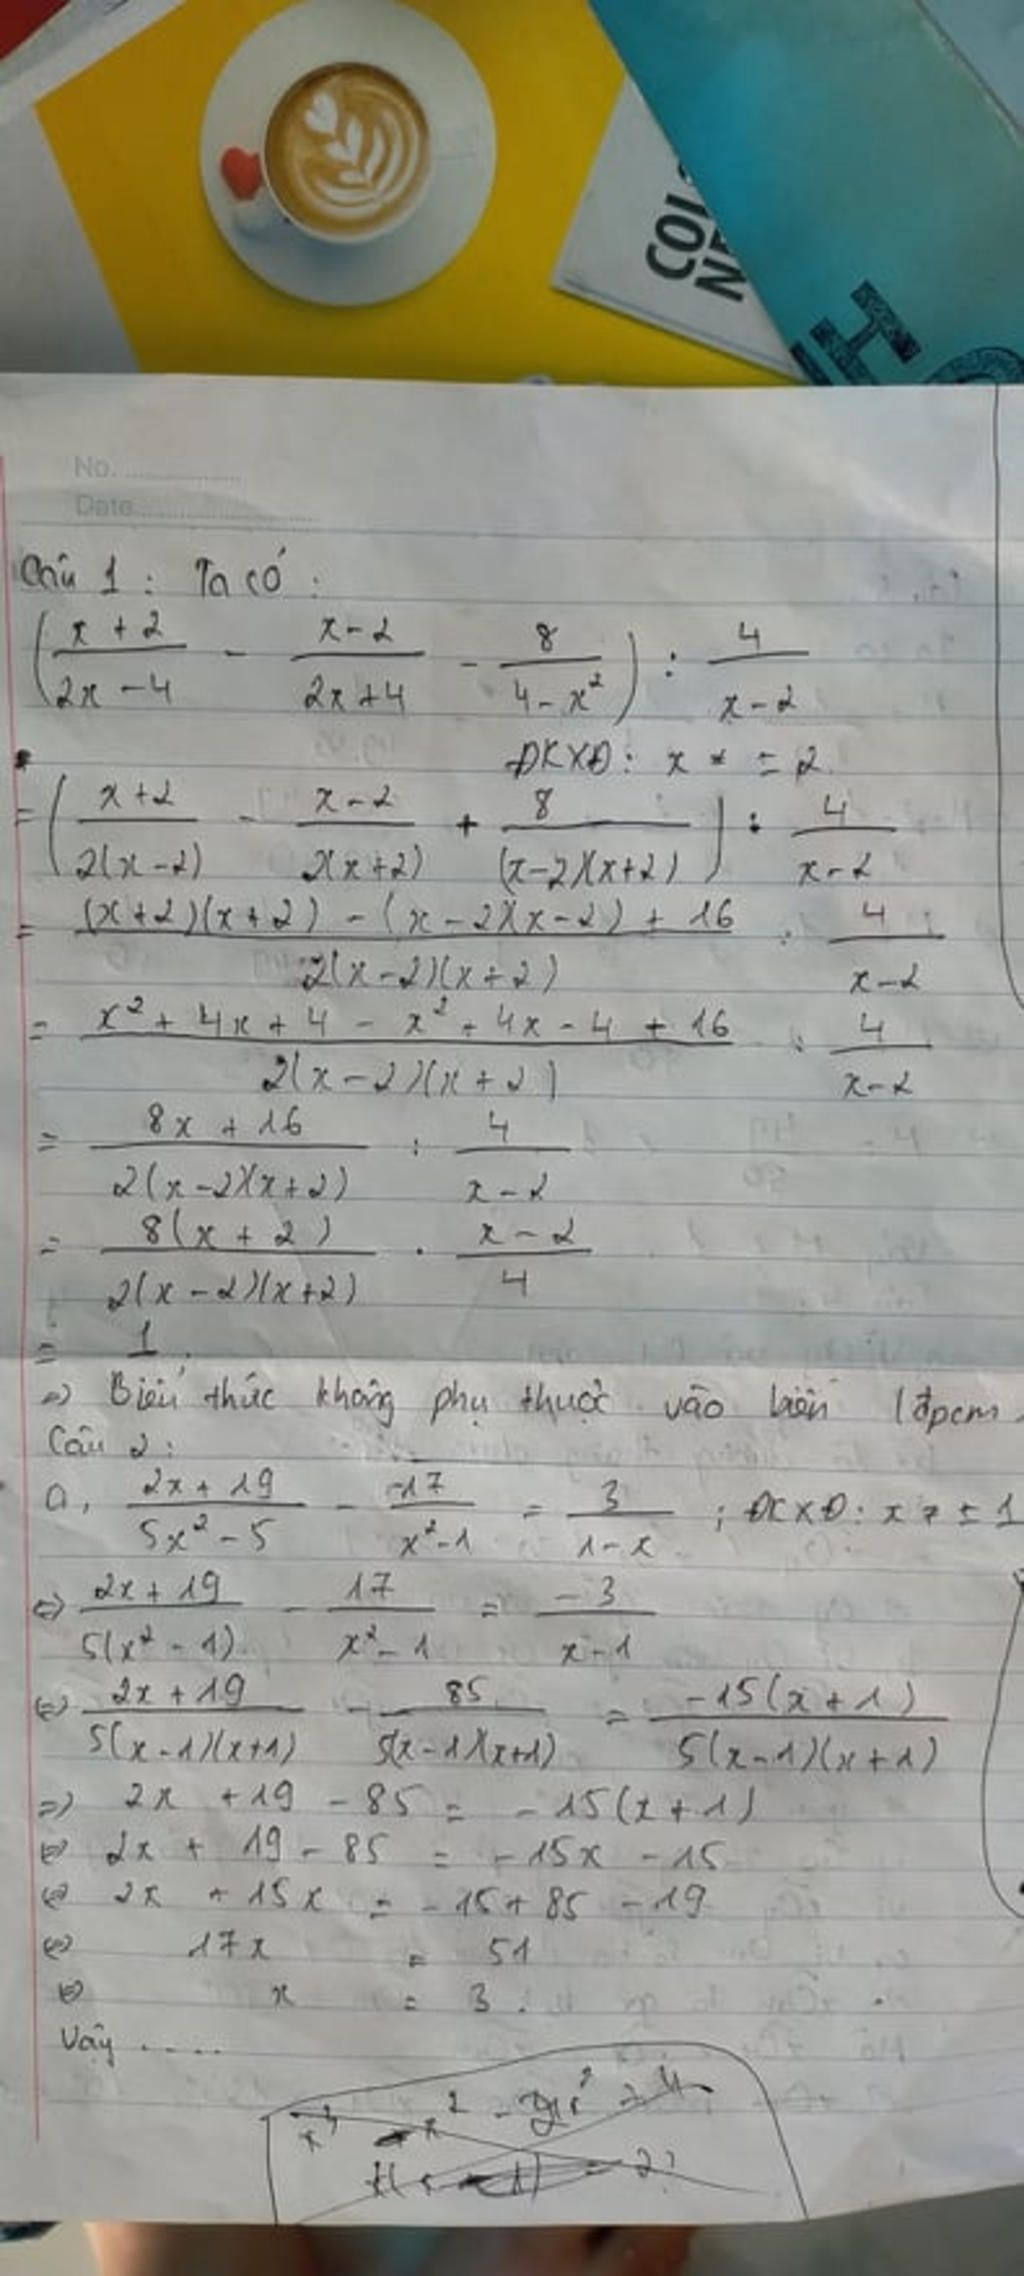 COL
NE
H
No.
Date
Câu 1 : Ta có :
( (x + 2)/(2x - 4) - (x - 2)/(2x + 4) - 8/(4 - x²) ) : 4/(x - 2)
ĐKXĐ : x ≠ ± 2
= ( (x + 2)/(2(x - 2)) - (x - 2)/(2(x + 2)) + 8/((x - 2)(x + 2)) ) : 4/(x - 2)
= ((x + 2)(x + 2) - (x - 2)(x - 2) + 16)/(2(x - 2)(x + 2)) : 4/(x - 2)
= (x² + 4x + 4 - x² + 4x - 4 + 16)/(2(x - 2)(x + 2)) : 4/(x - 2)
= (8x + 16)/(2(x - 2)(x + 2)) : 4/(x - 2)
= 8(x + 2)/(2(x - 2)(x + 2)) . (x - 2)/4
= 1
=> Biểu thức không phụ thuộc vào biến (đpcm
Câu 2 :
a, (2x + 19)/(5x² - 5) - 17/(x² - 1) = 3/(1 - x) ; ĐKXĐ : x ≠ ± 1
<=> (2x + 19)/(5(x² - 1)) - 17/(x² - 1) = -3/(x - 1)
<=> (2x + 19)/(5(x - 1)(x + 1)) - 85/(5(x - 1)(x + 1)) = -15(x + 1)/(5(x - 1)(x + 1))
=> 2x + 19 - 85 = -15(x + 1)
<=> 2x + 19 - 85 = -15x - 15
<=> 2x + 15x = -15 + 85 - 19
<=> 17x = 51
<=> x = 3 .
Vậy .....